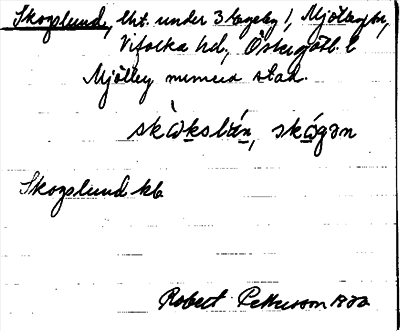 Skogslund, lht. under 3 Lageby 1, Mjölby,
Vifolka hd, Östergötl. l
Mjölby numera stad.
skògslùn, skógən
Skogslund kb
Robert Pettersson 1932